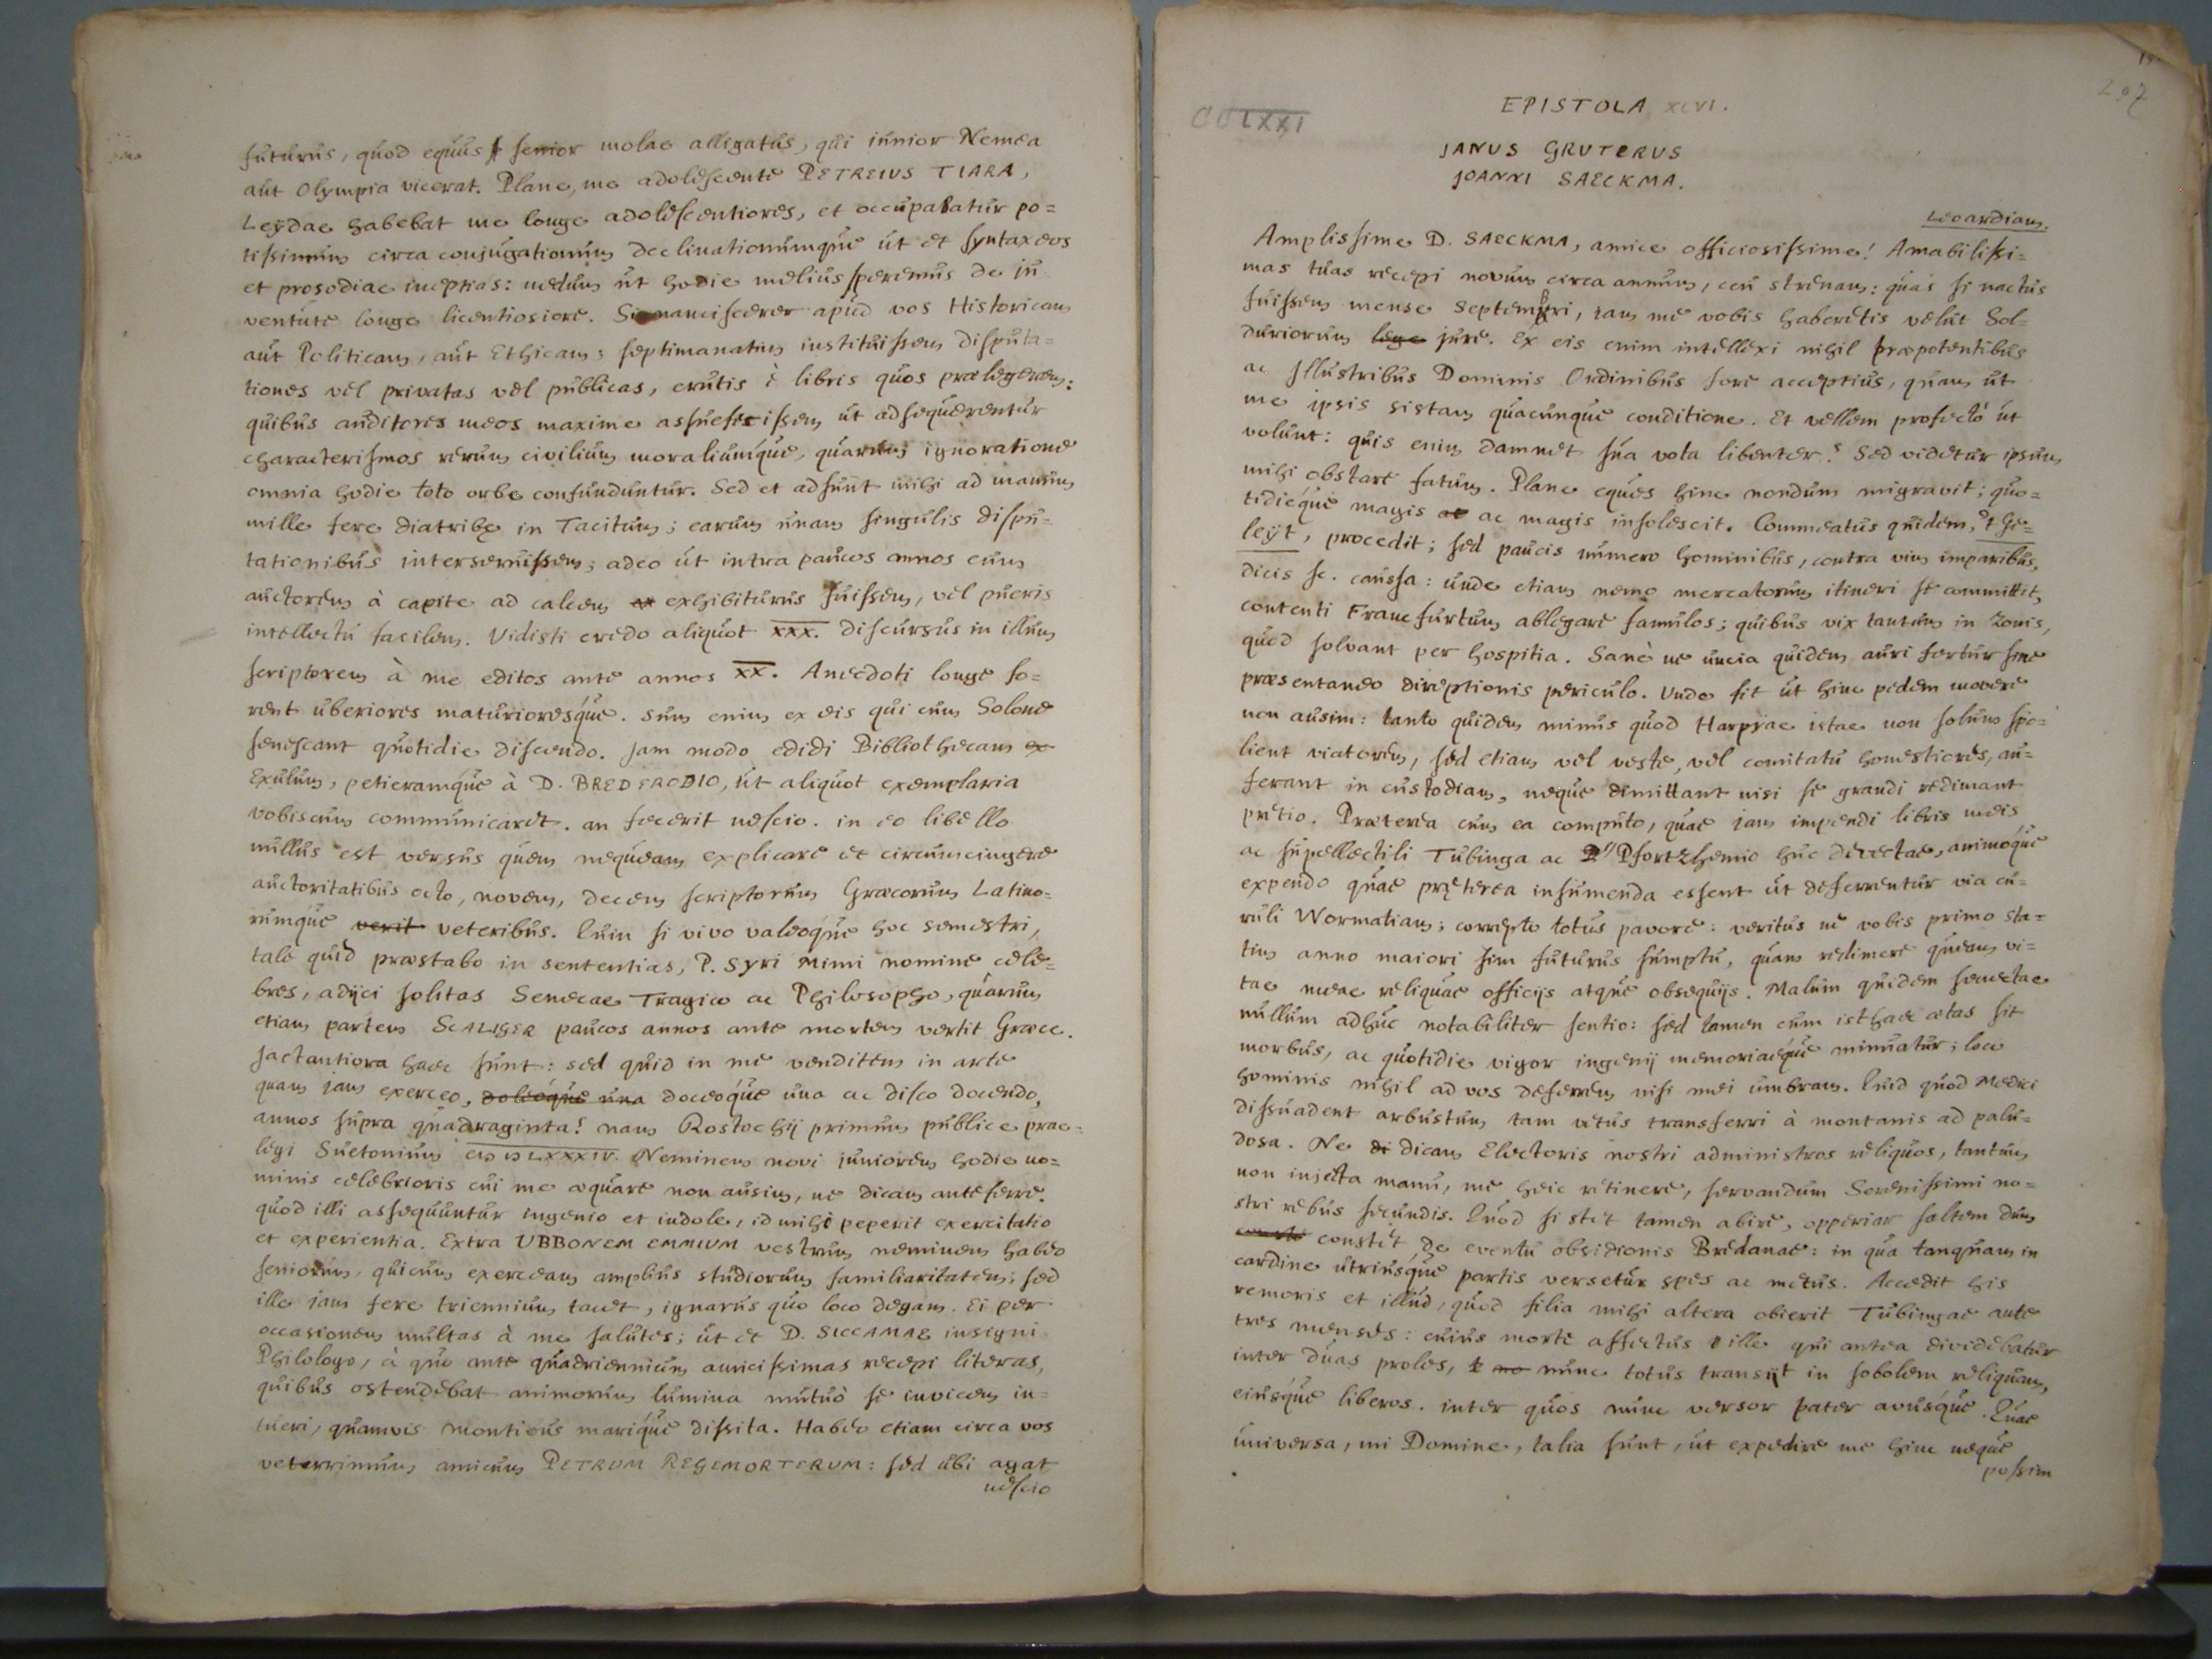 futurus, quod equus senior molae alligatus, qui iunior Nemea
aut Olympia vicerat. Plane, me adolescente PETREIUS TIARA,
Leÿdae habebat me longe adolescentiores, et occupabatur po=
tissimum circa conjugationum declinationumque ut et syntaxeos
et prosodiae ineptias: nedum ut hodie melius speremus de ju
ventute longe licentiosiore. Si nanciscerer apud vos Historicam
aut Politicam, aut Ethicam; septimanatim instituissem disputa=
tiones vel privatas vel publicas, erutis è libris quos praelegerem:
quibus auditores meos maxime assuefecissem ut adsequerentur
characterismos rerum civilium moraliumque, quarum ignoratione
omnia hodie toto orbe confunduntur. Sed et adsunt mihi ad manum
mille fere diatribe in Tacitum; earum unam singulis dispu=
tationibus interseruissem; adeo ut intra paucos annos eum
auctorem à capite ad calcem exhibiturus fuissem, vel pueris
intellectu facilem. Vidisti credo aliquot XXX. discursus in illum
scriptorem à me editos ante annos XX. Anecdoti longe fo=
rent uberiores maturioresque. Sum enim ex eis qui cum Solone
senescant quotidie discendo. Jam modo edidi Bibliothecam ex
Exulum, petieramque à D. BREDERODIO, ut aliquot exemplaria
vobiscum communicaret. an fecerit nescio. in eo libello
nullus est versus quem nequeam explicare et circumcingere
auctoritatibus octo, novem, decem scriptorum Graecorum Latino=
rumque verit veteribus. Quin si vivo valeoque hoc semestri,
tale quid praestabo in sententias, P. Syri Mimi nomine cele=
bres, adijci solitas Senecae Tragico ac Philosopho, quarum
etiam partem SCALIGER paucos annos ante mortem vertit Graece.
Jactantiora haec sunt: sed quid in me venditem in arte
quam jam exerceo, doleoque una doceoque una ac disco docendo,
annos supra quadraginta? nam Rostochij primum publice prae=
legi Suetonium CIƆ IƆ LXXXIV. Neminem novi juniorem hodie no=
minis celebrioris cui me aequare non ausim, ne dicam anteferre.
quod illi assequuntur ingenio et indole, id mihi peperit exercitatio
et experientia. Extra UBBONEM EMMIUM vestrum neminem habeo
seniorum, quicum exerceam amplius studiorum familiaritatem; sed
ille jam fere triennium tacet, ignarus quo loco degam. Ei per
occasionem multas à me salutes; ut et D. SICCAMAE insigni
Philologo, à quo ante quadriennium amicissimas recepi literas,
quibus ostendebat animorum lumina mutuò se invicem in=
tueri, quamvis montibus marique dissita. Habeo etiam circa vos
veterrimum amicum PETRUM REGEMORTERUM: sed ubi agat
nescio
297
CCLXXI
EPISTOLA XCVI.
JANUS GRUTERUS
JOANNI SAECKMA.
Leoardiam.
Amplissime D. SAECKMA, amice officiosissime! Amabilissi=
mas tuas recepi novum circa annum, ceu strenam: quas si nactus
fuissem mense Septembri, jam me vobis haberetis velut Sol=
duriorum lege jure. Ex eis enim intellexi nihil praepotentibus
ac Illustribus Dominis Ordinibus fore acceptius, quam ut
me ipsis sistam quacunque conditione. Et vellem profectò ut
volunt: quis enim damnet sua vota libenter? Sed videtur ipsum
mihi obstare fatum. Plane eques hinc nondum migravit; quo=
tidieque magis ac ac magis insolescit. Commeatus quidem, 't Ge=
leÿt, procedit; sed paucis numero hominibus, contra vim imparibus,
dicis sc. caussa: unde etiam nemo mercatorum itineri se committit,
contenti Francfurtum ablegare famulos; quibus vix tantum in zonis,
quod solvant per hospitia. Sanè ne uncia quidem auri fertur sine
praesentaneo direptionis periculo. Unde fit ut hinc pedem movere
non ausim: tanto quidem minus quod Harpÿae istae non solum spo=
lient viatorem, sed etiam vel veste, vel comitatu honestiores, au=
ferant in custodiam, neque dimittant nisi se grandi redimant
pretio. Praeterea cum ea computo, quae jam impendi libris meis
ac supellectili Tubinga ac Pfortzhemio huc devectae, animoque
expendo quae pręterea insumenda essent ut deferrentur via cu=
ruli Wormatiam; correpto totus pavore: veritus ne vobis primo sta=
tim anno maiori sim futurus sumptu, quam redimere queam vi=
tae meae reliquae officijs atque obsequijs. Malum quidem senectae
nullum adhuc notabiliter sentio: sed tamen cum isthaec aetas sit
morbus, ac quotidie vigor ingenij memoriaeque minuatur; loco
hominis nihil ad vos deferrem nisi mei umbram. Quid quod Medici
dissuadent arbustum tam vetus transferri à montanis ad palu=
dosa. Ne di dicam Electoris nostri administros reliquos, tantum
non injecta manu, me heic retinere, servandum Serenissimi no=
stri rebus secundis. Quod si stet tamen abire, opperiar saltem dum
constet de eventu obsidionis Bredanae: in qua tanquam in
cardine utriusque partis versetur spes ac metus. Accedit his
remoris et illud, quod filia mihi altera obierit Tubingae ante
tres menses: cuius morte affectus ille qui antea dividebatur
inter duas proles, no nunc totus transijt in sobolem reliquam,
eiusque liberos. inter quos nunc versor pater avusque. Quae
universa, mi Domine, talia sunt, ut expedire me hinc neque
possim